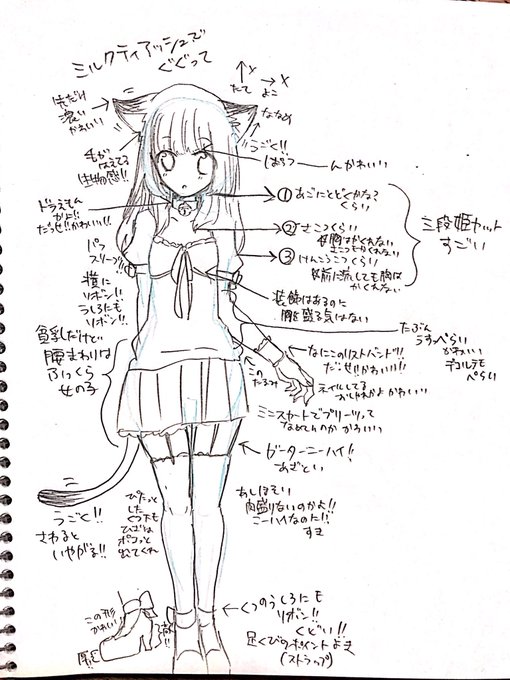 ミルクティアッシュで
ぐぐって
↑Y →X
たて よこ
ななめ
うごく!!
先だけ
濃い
かわいい
毛が
はえてる
生物感!!
んかわいい
ドラえもん
かよ!!
だっせ!!かわいい!!
①あごにとどくかな?
くらい
②さこつくらい
③けんこうこつくらい
かくれない
三段姫カット
すごい
パフ
スリーブ!!
リボン!!
うしろにも
リボン!!
装飾はあるのに
胸を盛る気はない
たぶん
うすっぺらい
かわいい
デコルテも
ぺらい
貧乳だけど
腰まわりは
ふっくら
女の子
なにこのリストバンド!!
だっせ!!かわいい!!
この
たるみ
ネイルしてる
おしゃれかよ かわいい
ミニスカートでプリーツって
なめてんのか かわいい
ガーターニーハイ!!
あざとい
うごく!!
さわると
いやがる!!
ぴたっと
した
くつ下も
ひざは
ポコッと
出てくれ
あしほそい
肉盛りないのかよ!!
ニーハイなのに!!
すき
くつのうしろにも
リボン!!
くどい!!
足くびのポイントよき
(ストラップ)
この形
かわいい
厚底